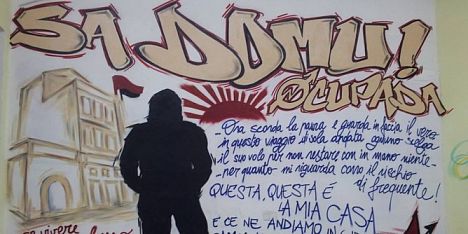 SA DOMU!
OCUPADA
- Ora scorda la paura e guarda in faccia il vero
in questo viaggio di sola andata ognuno scelga
il suo volo per non restare con in mano niente -
- per quanto mi riguarda corro il rischio
di frequente!
QUESTA, QUESTA É
LA MIA CASA
E CE NE ANDIAMO IN
vivere